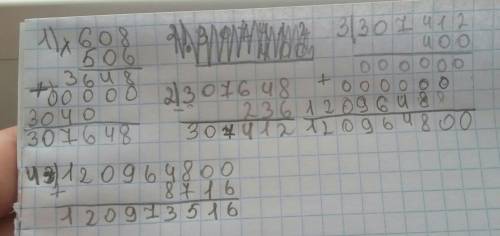 1) x 608
506
+ 3648
00000
3040
307648
2) 307648
- 236
307412
3) 307412
400
000000
+ 000000
12096488
120964800
4) 120964800
+ 8716
120973516